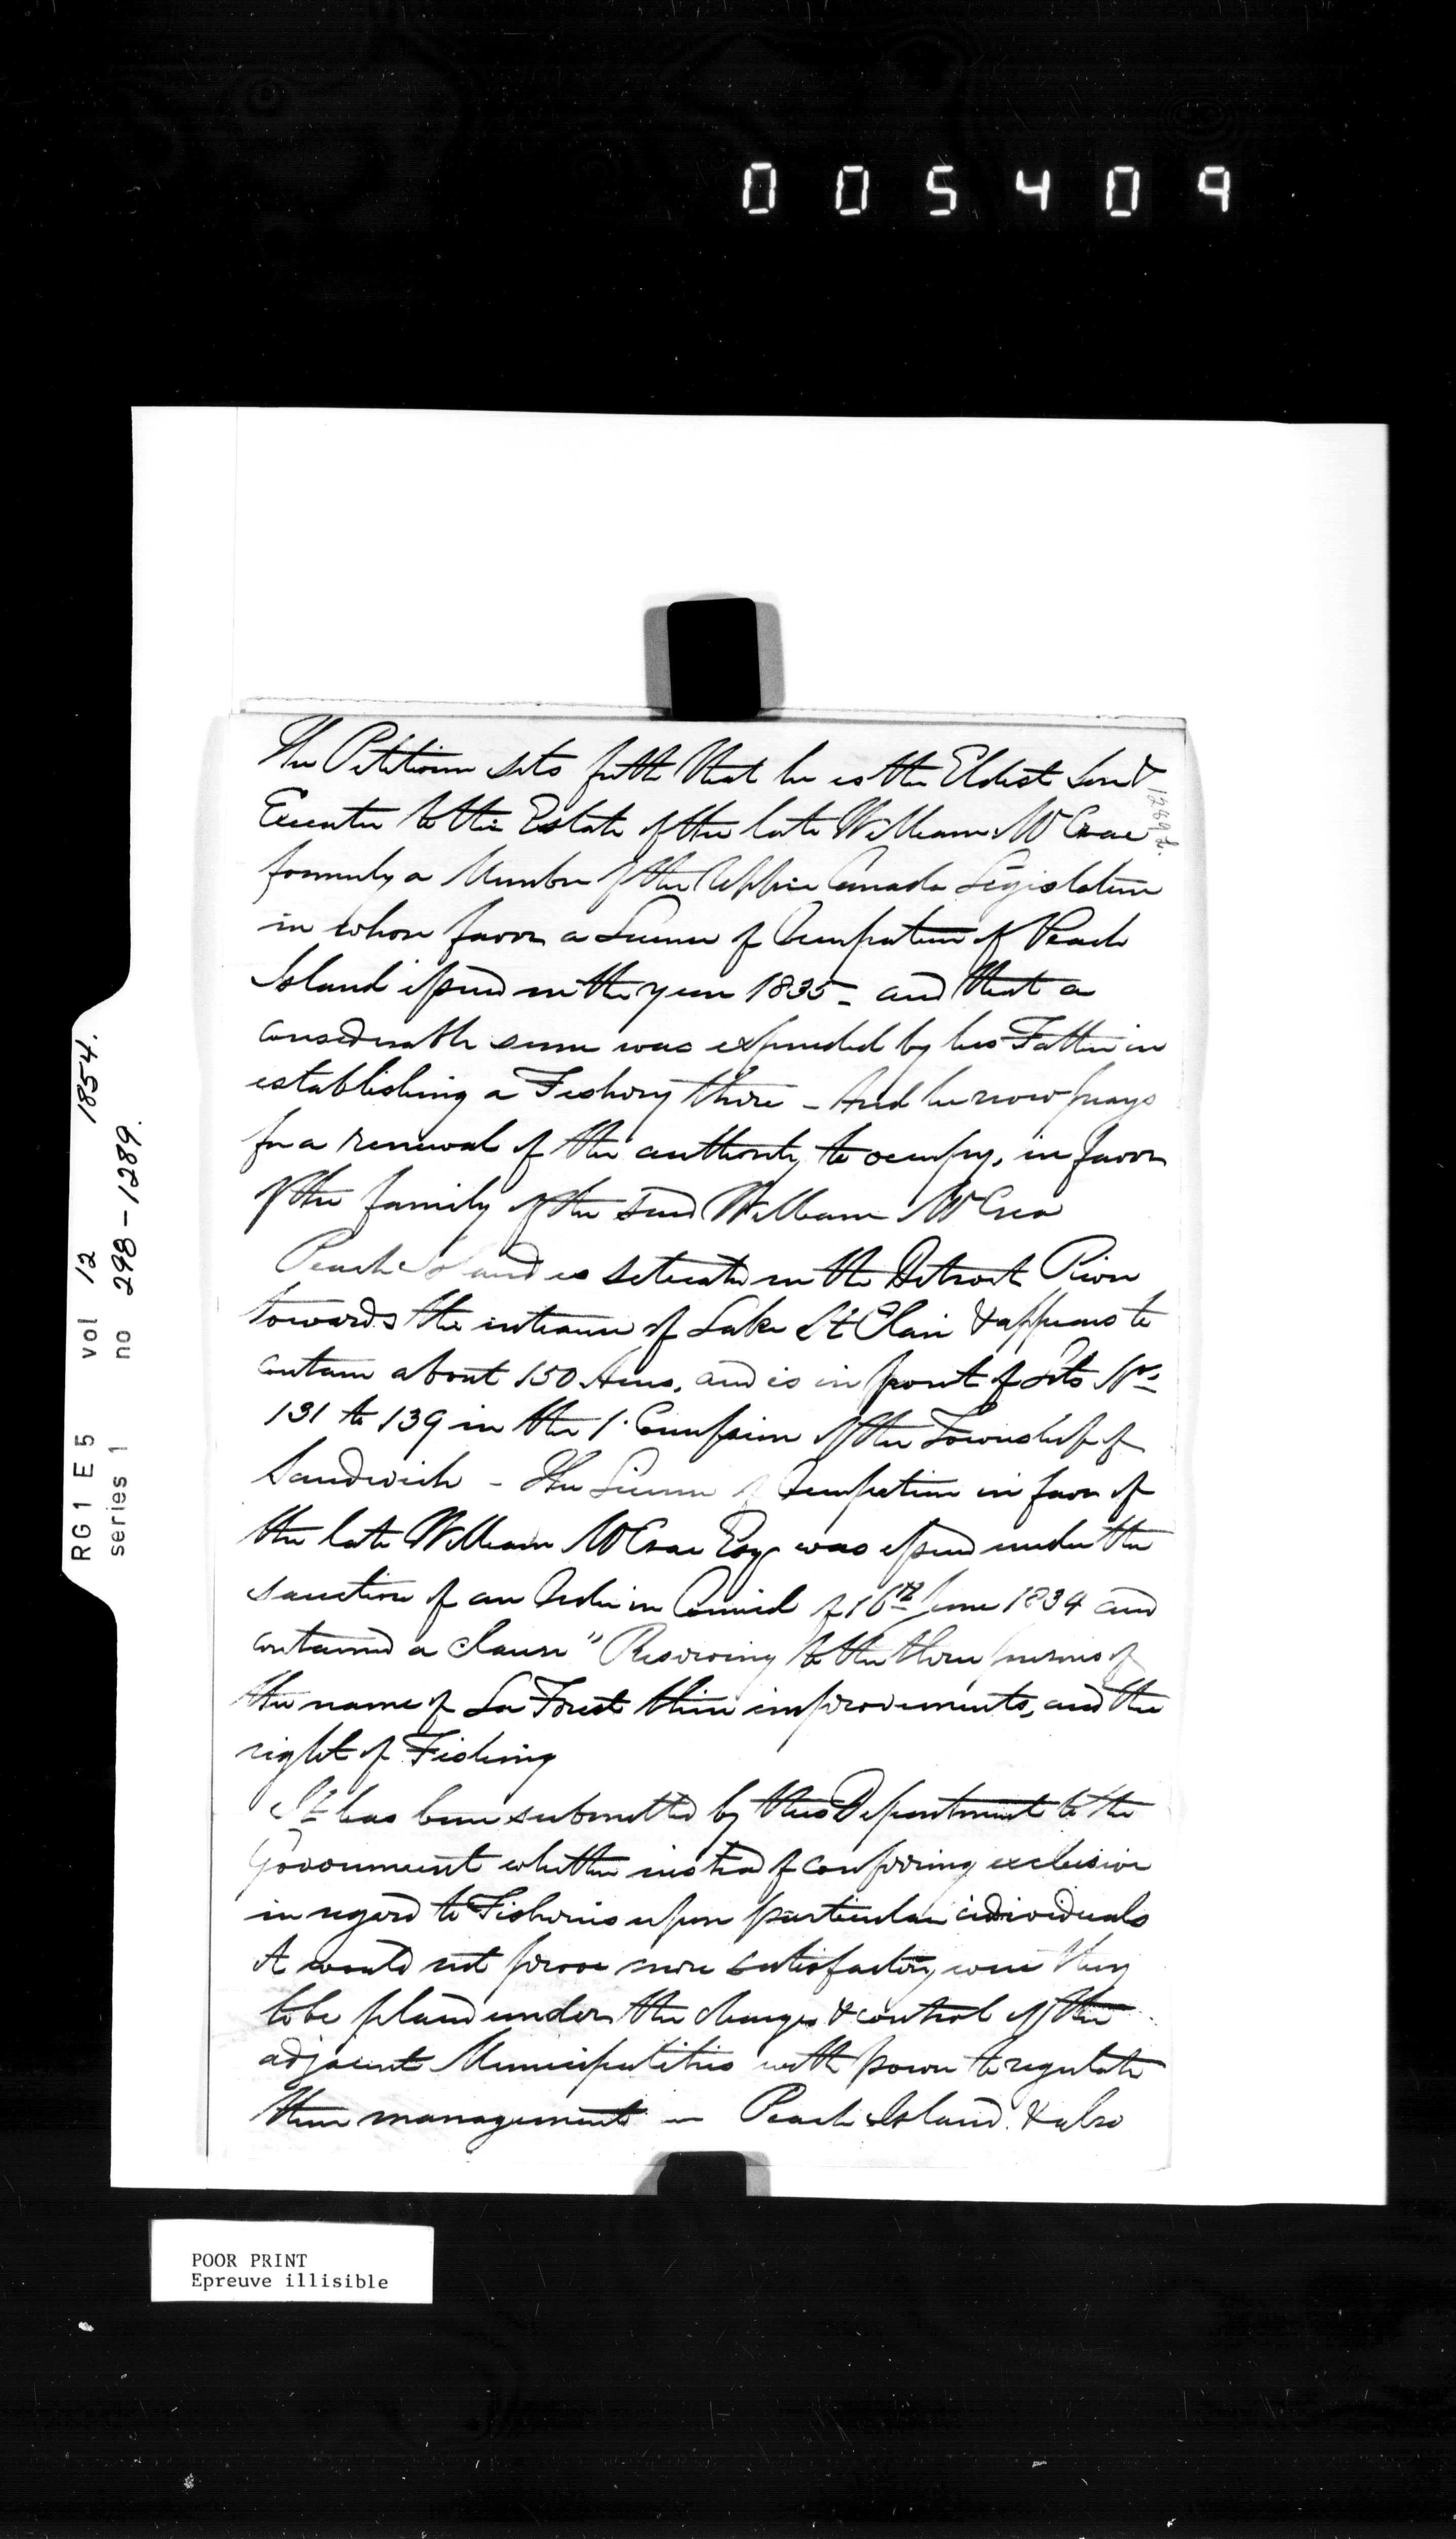 005409
The Petitioner sets forth that he is the Eldest Son &
Executor to the Estate of the late William McCrae
formerly a Member of the Upper Canada Legislature
in whose favor a License of Occupation of Peach
Island issued in the year 1835 - and that a
considerable sum was expended by his Father in
establishing a Fishery there - And he now prays
for a renewal of the authority to occupy, in favor
of the family of the said William McCrea
Peach Island is situate in the Detroit River
towards the entrance of Lake St Clair & appears to
contain about 150 Acres, and is in front of Lots Nos
131 to 139 in the 1. Concession of the Township of
Sandwich - The License of Occupation in favor of
the late William McCrae Esqr was issued under the
sanction of an Order in Council of 16th June 1834 and
contained a clause "Reserving to the three persons of
the name of La Forest their improvements, and the
right of Fishing
It has been submitted by this Department to the
Government whether instead of conferring exclusive
in regard to Fisheries upon particular individuals
it would not prove more satisfactory were they
to be placed under the charge & control of the
adjacent Municipalities with power to regulate
their management - Peach Island & also
1289 d.
RG 1 E 5 vol 12 1854.
series 1 no 298-1289.
POOR PRINT
Epreuve illisible